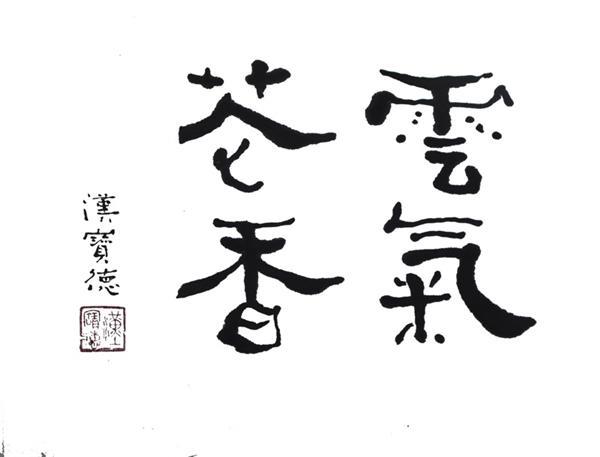 雲氣
花香
漢寶德